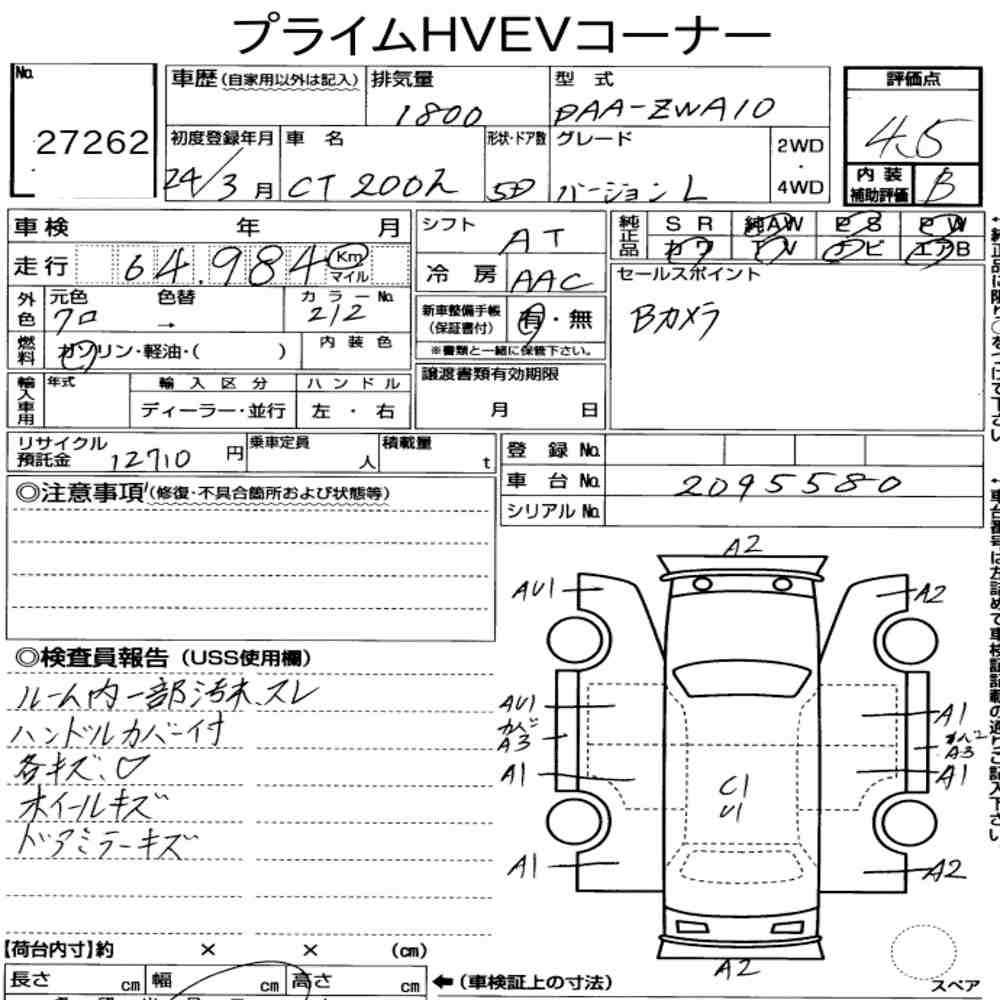 プライムHVEVコーナー
No. 27262
車歴(自家用以外は記入)
排気量 1800
型式 DAA-ZWA10
評価点 4.5
内装補助評価 B
初度登録年月 24/3月
車名 CT200h
形状・ドア数 5D
グレード バージョンL
2WD・4WD
車検 年 月
走行 64,984 Km マイル
外色 元色 クロ 色替 → カラーNo. 212
燃料 ガソリン・軽油・( ) 内装色
輸入車用 年式 輸入区分 ハンドル
ディーラー・並行 左・右
シフト AT
冷房 AAC
新車整備手帳(保証書付) 有・無
※書類と一緒に保管下さい。
譲渡書類有効期限
月 日
純正品 SR 純AW PS PW
カワ TV ナビ エアB
セールスポイント
Bカメラ
リサイクル預託金 12710円
乗車定員 人
積載量 t
登録No.
車台No. 2095580
シリアルNo.
◎注意事項(修復・不具合箇所および状態等)
◎検査員報告(USS使用欄)
ルーム内一部汚れ、スレ
ハンドルカバー付
各キズ、♡
ホイールキズ
ドアミラーキズ
A2
AU1 A2
AU1 A1
A3 A3
A1 A1
C1
U1
A1 A2
A2
スペア
【荷台内寸】約 × × (cm)
長さ cm 幅 cm 高さ cm
←(車検証上の寸法)